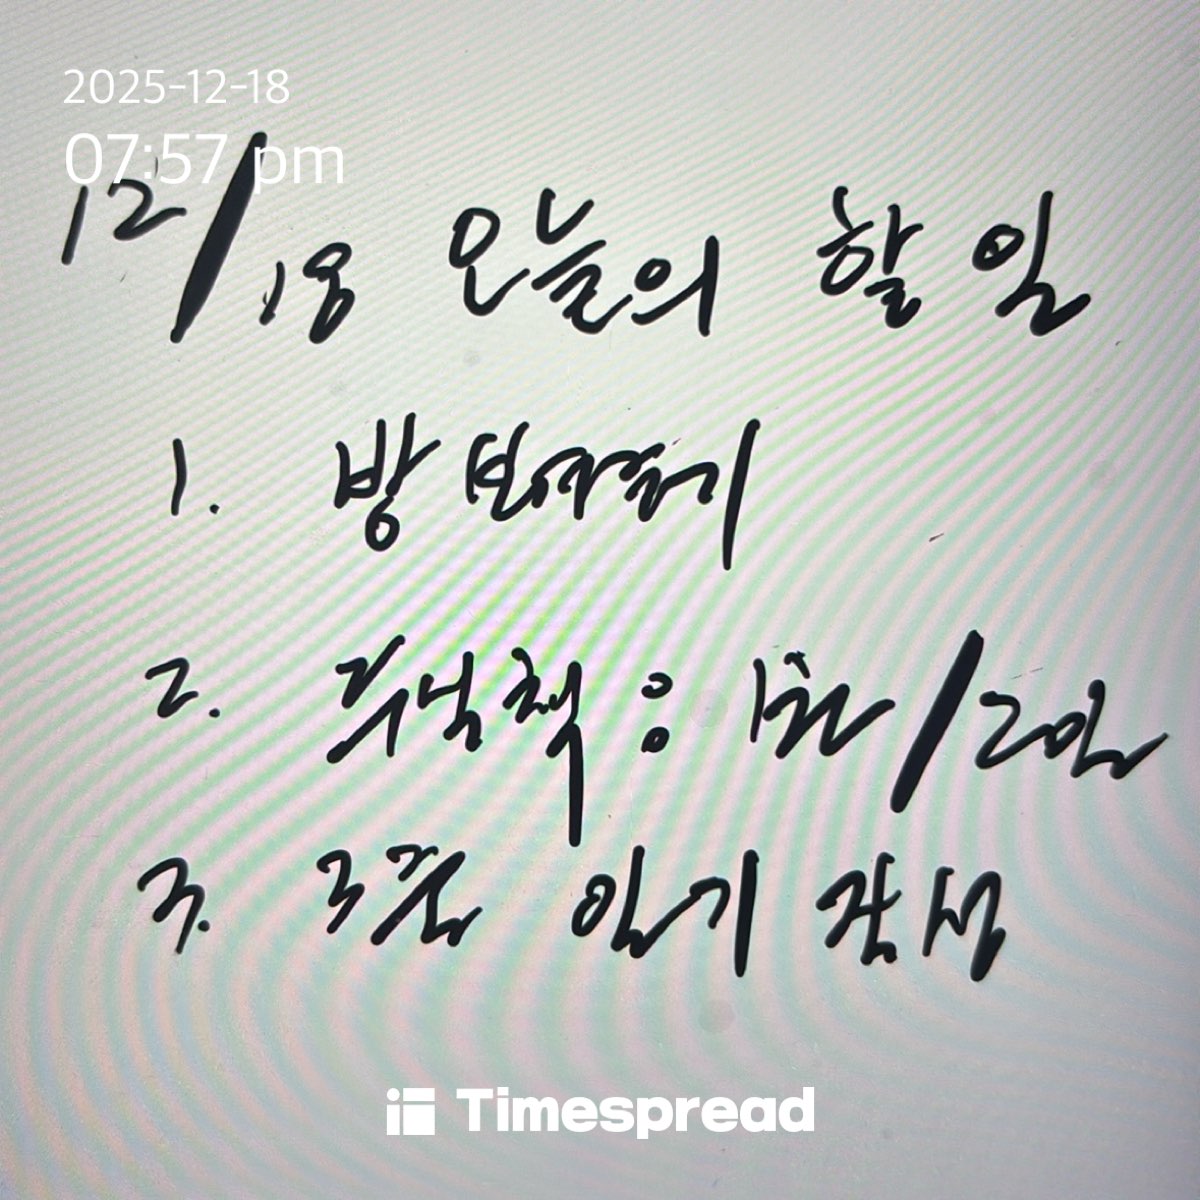 2025-12-18
07:57 pm
12/18 오늘의 할 일
1. 방
2. : 1권/2일
3. 3줄 일기 작성
Timespread